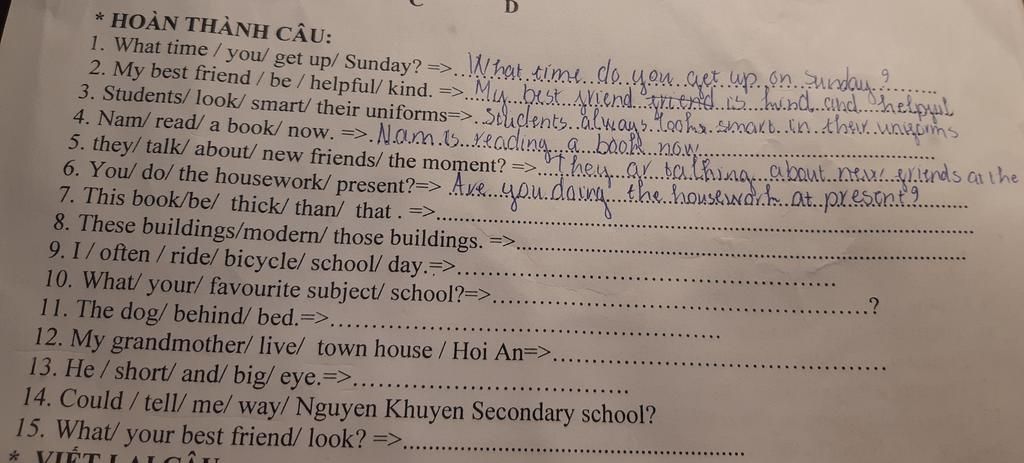 C D
* HOÀN THÀNH CÂU:
1. What time / you/ get up/ Sunday? =>..What time do you get up on Sunday?......
2. My best friend / be / helpful/ kind. =>..My best friend friend is kind and helpful
3. Students/ look/ smart/ their uniforms=>..Students always looks smart in their uniforms
4. Nam/ read/ a book/ now. =>.Nam is reading a book now..............................
5. they/ talk/ about/ new friends/ the moment? =>..They ar talking about new friends at the
6. You/ do/ the housework/ present?=> Are you doing the housework at present?.......
7. This book/be/ thick/ than/ that . =>................................................................
8. These buildings/modern/ those buildings. =>......................................................
9. I / often / ride/ bicycle/ school/ day.=>..............................................
10. What/ your/ favourite subject/ school?=>..............................................?
11. The dog/ behind/ bed.=>..............................................
12. My grandmother/ live/ town house / Hoi An=>..............................................
13. He / short/ and/ big/ eye.=>..................................
14. Could / tell/ me/ way/ Nguyen Khuyen Secondary school?
15. What/ your best friend/ look? =>..............................................
* VIẾT LẠI CÂU